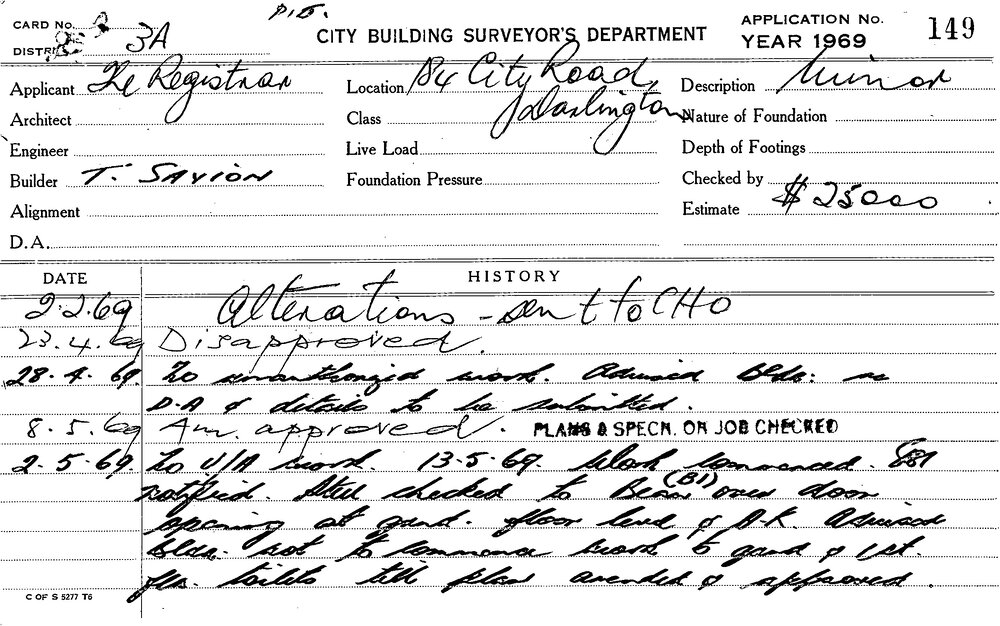 P.T.O.
CARD No. 2
DISTRICT 3A
CITY BUILDING SURVEYOR'S DEPARTMENT
APPLICATION No. 149
YEAR 1969
Applicant The Registrar
Location 184 City Road, Darlington
Description Minor
Architect
Class
Nature of Foundation
Engineer
Live Load
Depth of Footings
Builder T. SAVION
Foundation Pressure
Checked by
Alignment
Estimate $ 25000
D.A.
DATE HISTORY
2.2.69 Alterations - sent to CHO
23.4.69 Disapproved.
28.4.69. To unauthorized work. Advised Bldr: as
D.A & details to be submitted.
8.5.69 Am. approved. PLANS & SPECN. ON JOB CHECKED
2.5.69. To U/A work. 13.5.69. Work commenced.
notified. Steel checked to Beam (B1) over door
opening at gand. floor level & O.K. Advised
bldr. not to commence work to gand & 1st.
flrs. toilets till plan amended & approved.
C OF S 5277 T6